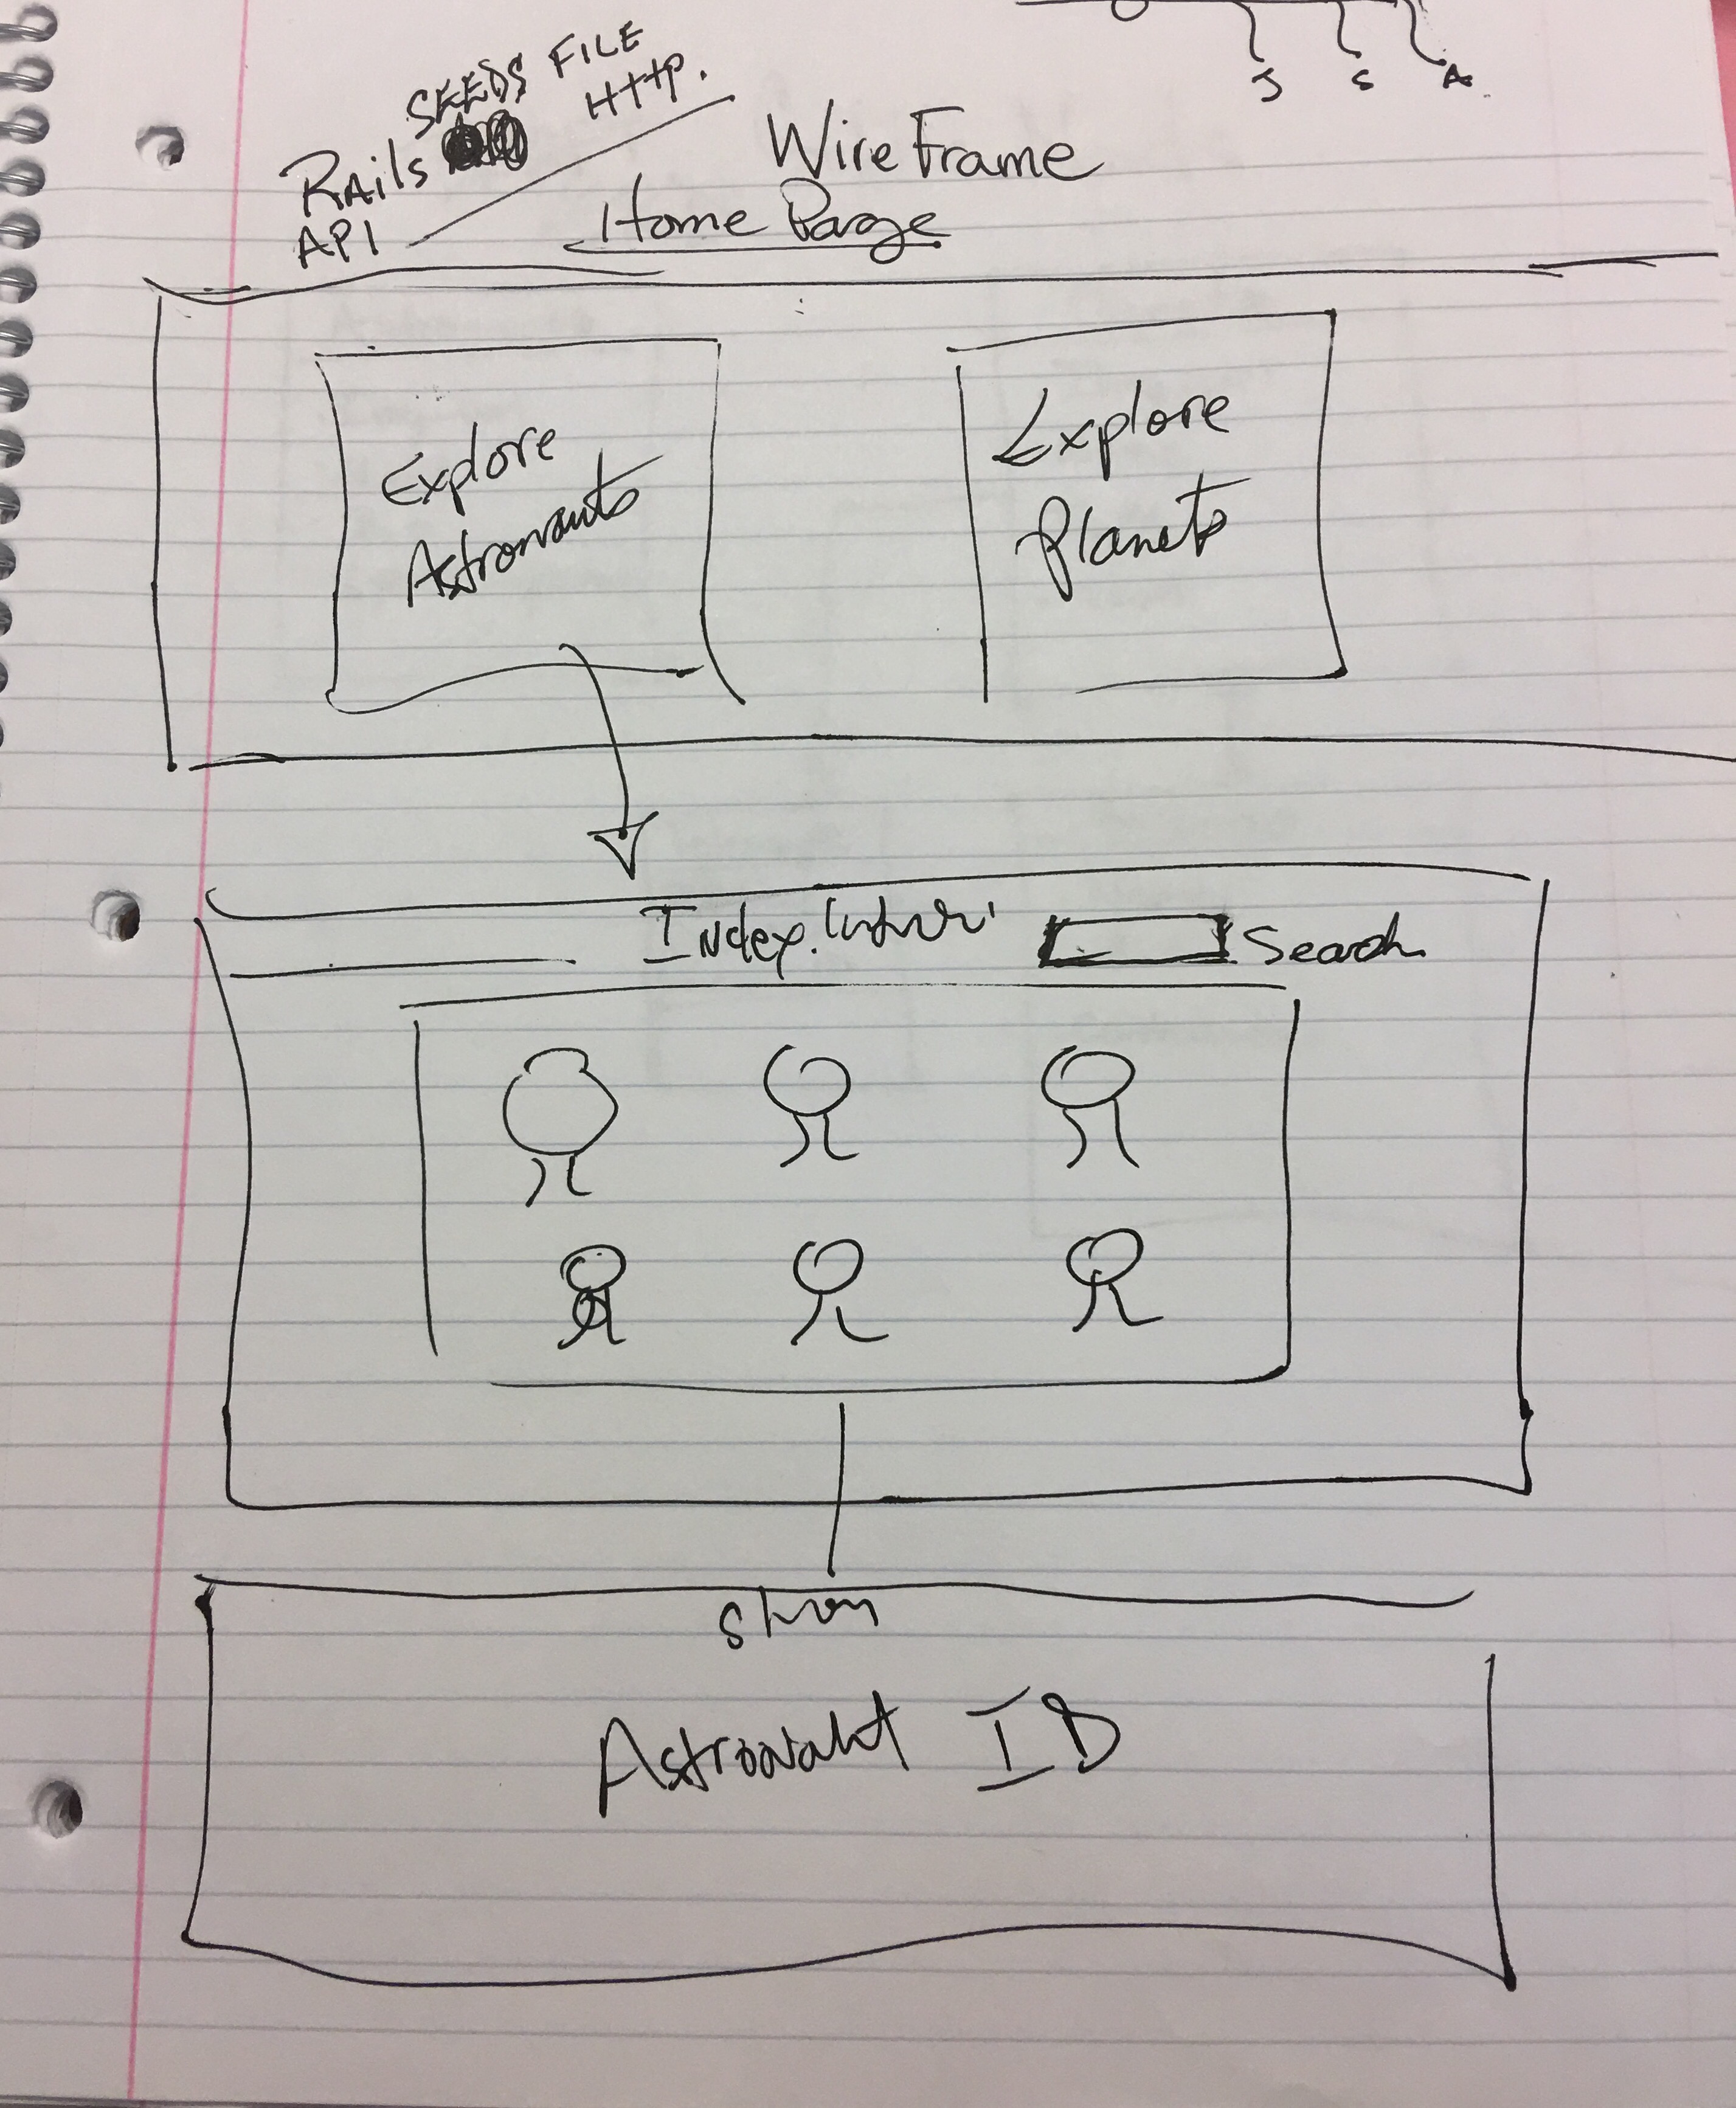 J S A
SEEDS FILE
HTTP.
Rails
API
WireFrame
Home Page
Explore
Astronauts
Explore
Planets
Index.
Search
Show
Astronaut ID